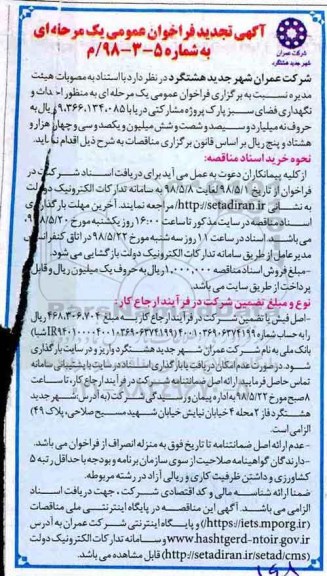 شرکت عمران
شهر جدید هشتگرد
آگهی تجدید فراخوان عمومی یک مرحله ای
به شماره ۵-۳-۹۸/م
شرکت عمران شهر جدید هشتگرد در نظر دارد با استناد به مصوبات هیئت
مدیره نسبت به برگزاری فراخوان عمومی یک مرحله ای به منظور احداث و
نگهداری فضای سبز پارک پروژه مشارکتی دریا با ۹،۳۶۶،۱۳۴،۰۸۵ ریال به
حروف نه میلیارد و سیصد و شصت و شش میلیون و یکصد و سی و چهار هزار و
هشتاد و پنج ریال بر اساس قانون برگزاری مناقصات به شرح ذیل اقدام نماید.
نحوه خرید اسناد مناقصه:
از کلیه پیمانکاران دعوت به عمل می آید برای دریافت اسناد شرکت در
فراخوان از تاریخ ۹۸/۵/۱ لغایت ۹۸/۵/۸ به سامانه تدارکات الکترونیک دولت
به نشانی http://setadiran.ir مراجعه نمایند. آخرین مهلت بارگذاری
اسناد مناقصه در سایت مذکور تا ساعت ۱۶:۰۰ روز یکشنبه مورخ ۹۸/۵/۲۰
می باشد. اسناد در ساعت ۱۱ روز سه شنبه مورخ ۹۸/۵/۲۲ در اتاق کنفرانس
مدیر عامل از طریق سامانه تدارکات الکترونیک دولت بازگشایی می شود.
-مبلغ فروش اسناد مناقصه ۱،۰۰۰،۰۰۰ ریال به حروف یک میلیون ریال و قابل
پرداخت از طریق سایت می باشد.
نوع و مبلغ تضمین شرکت در فرآیند ارجاع کار:
-اصل فیش یا تضمین شرکت در فرآیند ارجاع کار به مبلغ ۴۶۸،۳۰۶،۷۰۴ ریال
را به حساب شماره
بانک ملی به نام شرکت عمران شهر جدید هشتگرد واریز و در سایت بارگذاری
شود. در صورت عدم امکان دریافت یا بارگذاری اسناد در سایت با پشتیبانی سامانه
تماس حاصل فرمایید. ارائه اصل ضمانتنامه شرکت در فرآیند ارجاع کار، تا ساعت
۸ صبح مورخ ۹۸/۵/۲۲ به اداره پیمان و رسیدگی شرکت (به آدرس: شهر جدید
هشتگرد فاز ۲ محله ۴ خیابان نیایش خیابان شهید مسیح صلاحی، پلاک ۴۹)
الزامی است.
-عدم ارائه اصل ضمانتنامه تا تاریخ فوق به منزله انصراف از فراخوان می باشد.
-دارندگان گواهینامه صلاحیت از سوی سازمان برنامه و بودجه با حداقل رتبه ۵
کشاورزی و داشتن ظرفیت کاری و ریالی آزاد در رشته مربوطه.
ضمنا ارائه شناسه ملی و کد اقتصادی شرکت ، جهت دریافت اسناد
الزامی می باشد. آگهی این مناقصه در پایگاه اینترنتی ملی مناقصات
(https://iets.mporg.ir) و پایگاه اینترنتی شرکت عمران به آدرس
www.hashtgerd-ntoir.gov.ir و سامانه تدارکات الکترونیک دولت
(http://setadiran.ir/setad/cms) قابل مشاهده می باشد.